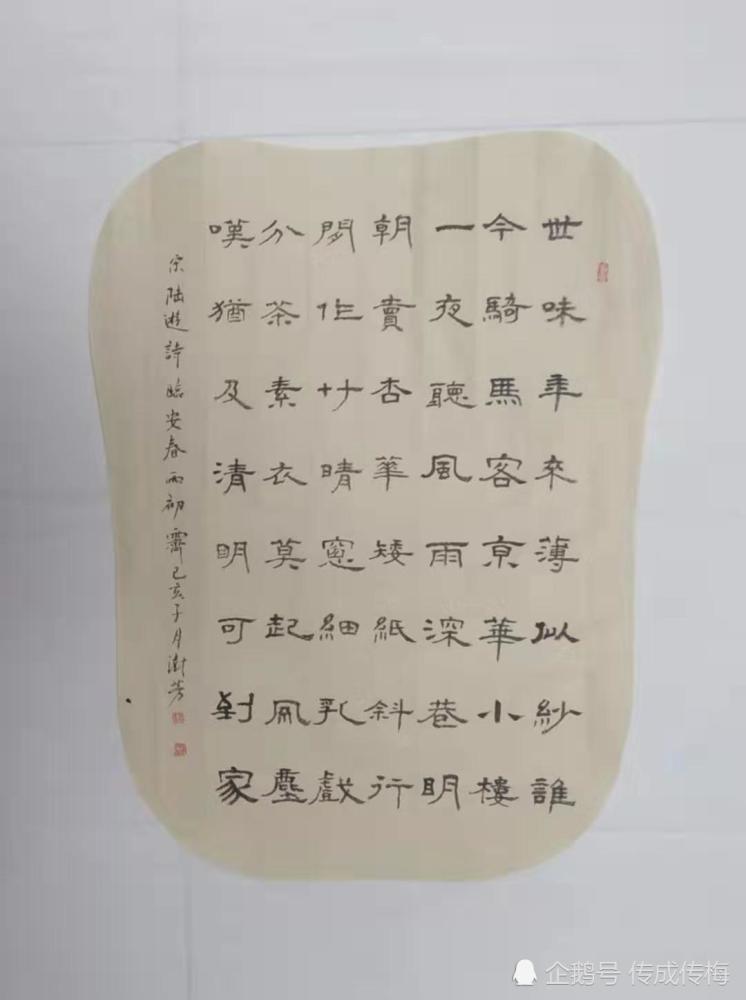 世味年來薄似紗誰
今騎馬客京華小樓
一夜聽風雨深巷明
朝賣杏華矮紙斜行
閒作艸晴窻細乳戲
分茶素衣莫起風塵
嘆猶及清明可到家
宋陸遊詩臨安春雨初霽己亥子月澍芳
企鹅号 传成传梅